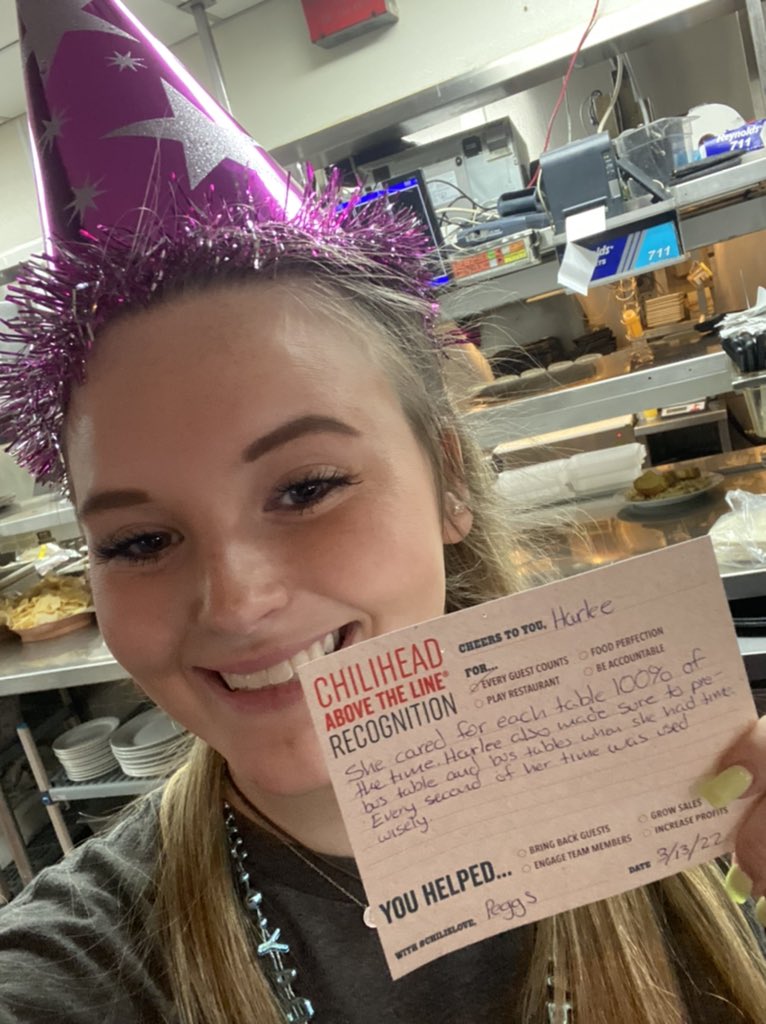 Reynolds
711
711
CHEERS TO YOU, Harlee
CHILIHEAD
ABOVE THE LINE®
RECOGNITION
FOR...
EVERY GUEST COUNTS
FOOD PERFECTION
PLAY RESTAURANT
BE ACCOUNTABLE
She cared for each table 100% of
the time. Harlee also made sure to pre-
bus table and bus tables when she had time.
Every second of her time was used
wisely.
YOU HELPED...
BRING BACK GUESTS
GROW SALES
ENGAGE TEAM MEMBERS
INCREASE PROFITS
WITH #CHILISLOVE, Peggs
DATE 3/13/22